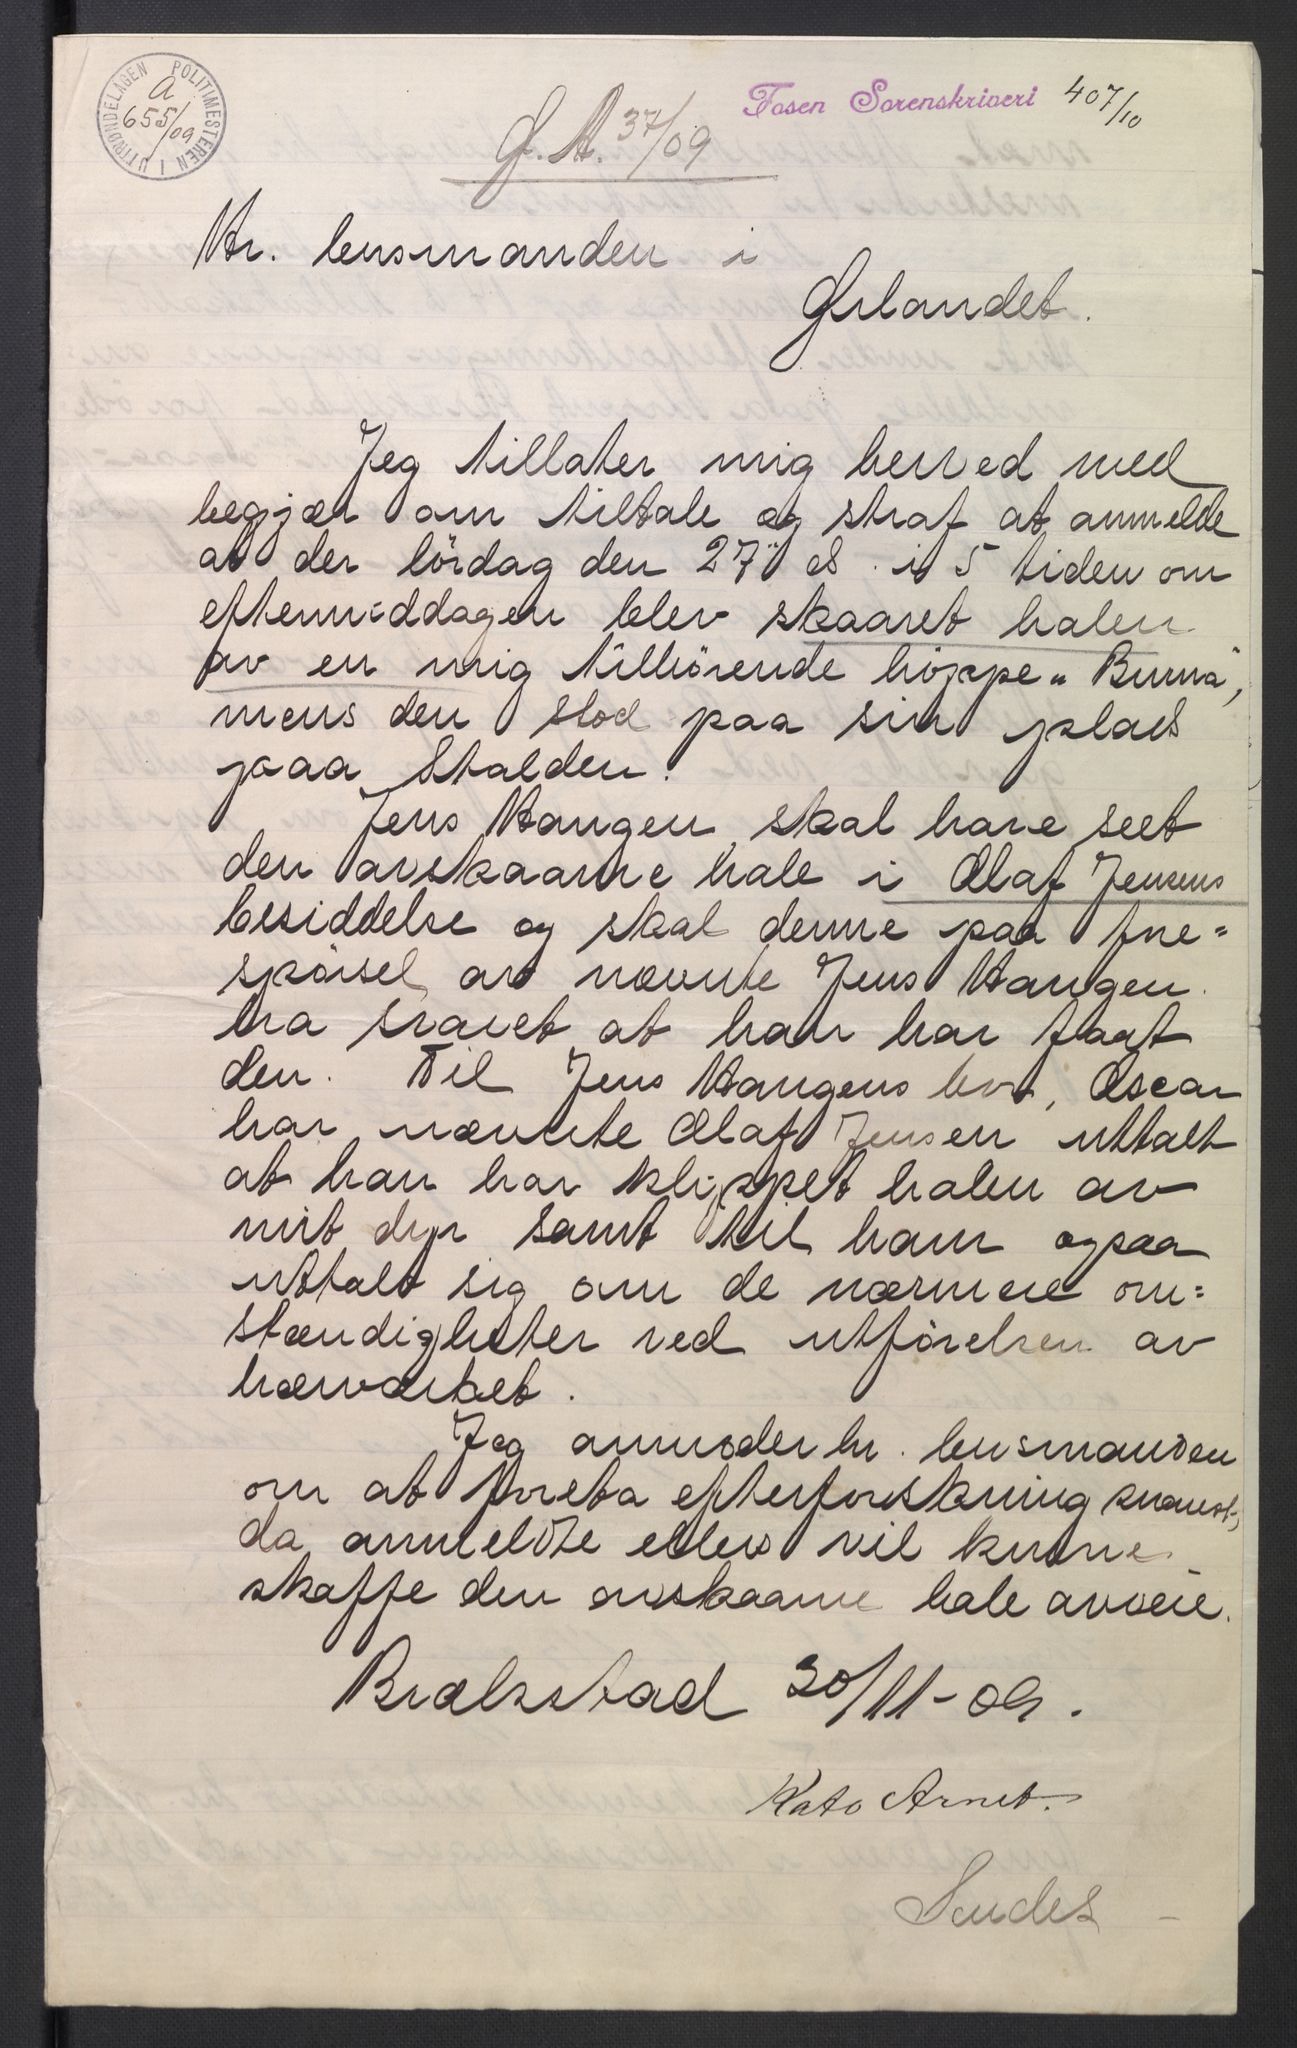 POLITIMESTEREN I UTTRØNDELAGEN
A
655/09
Fosen Sorenskriveri 407/10
Ø. A. 37/09
Hr. lensmanden i
Ørlandet.
Jeg tillater mig herved med
begjær om tiltale og straf at anmelde
at der lördag den 27' ds. i 5 tiden om
eftermiddagen blev skaaret halen
av en mig tilhörende hoppe "Burma",
mens den stod paa sin plads
paa Stalden.
Jens Haugen skal have seet
den avskaarne hale i Olaf Jensens
besiddelse og skal denne paa fore=
spörsel av nævnte Jens Haugen
ha svaret at han har faat
den. Til Jens Haugens bror, Oscar
har nævnte Olaf Jensen uttalt
at han har klippet halen av
mit dyr samt til ham ogsaa
uttalt sig om de nærmere om=
stændigheter ved utförelsen av
hærværket.
Jeg anmoder hr. lensmanden
om at foreta efterforskning snarest,
da anmeldte ellers vil kunne
skaffe den avskaarne hale avveie.
Brækstad 30/11-09.
Kato Arnet.
Sendes